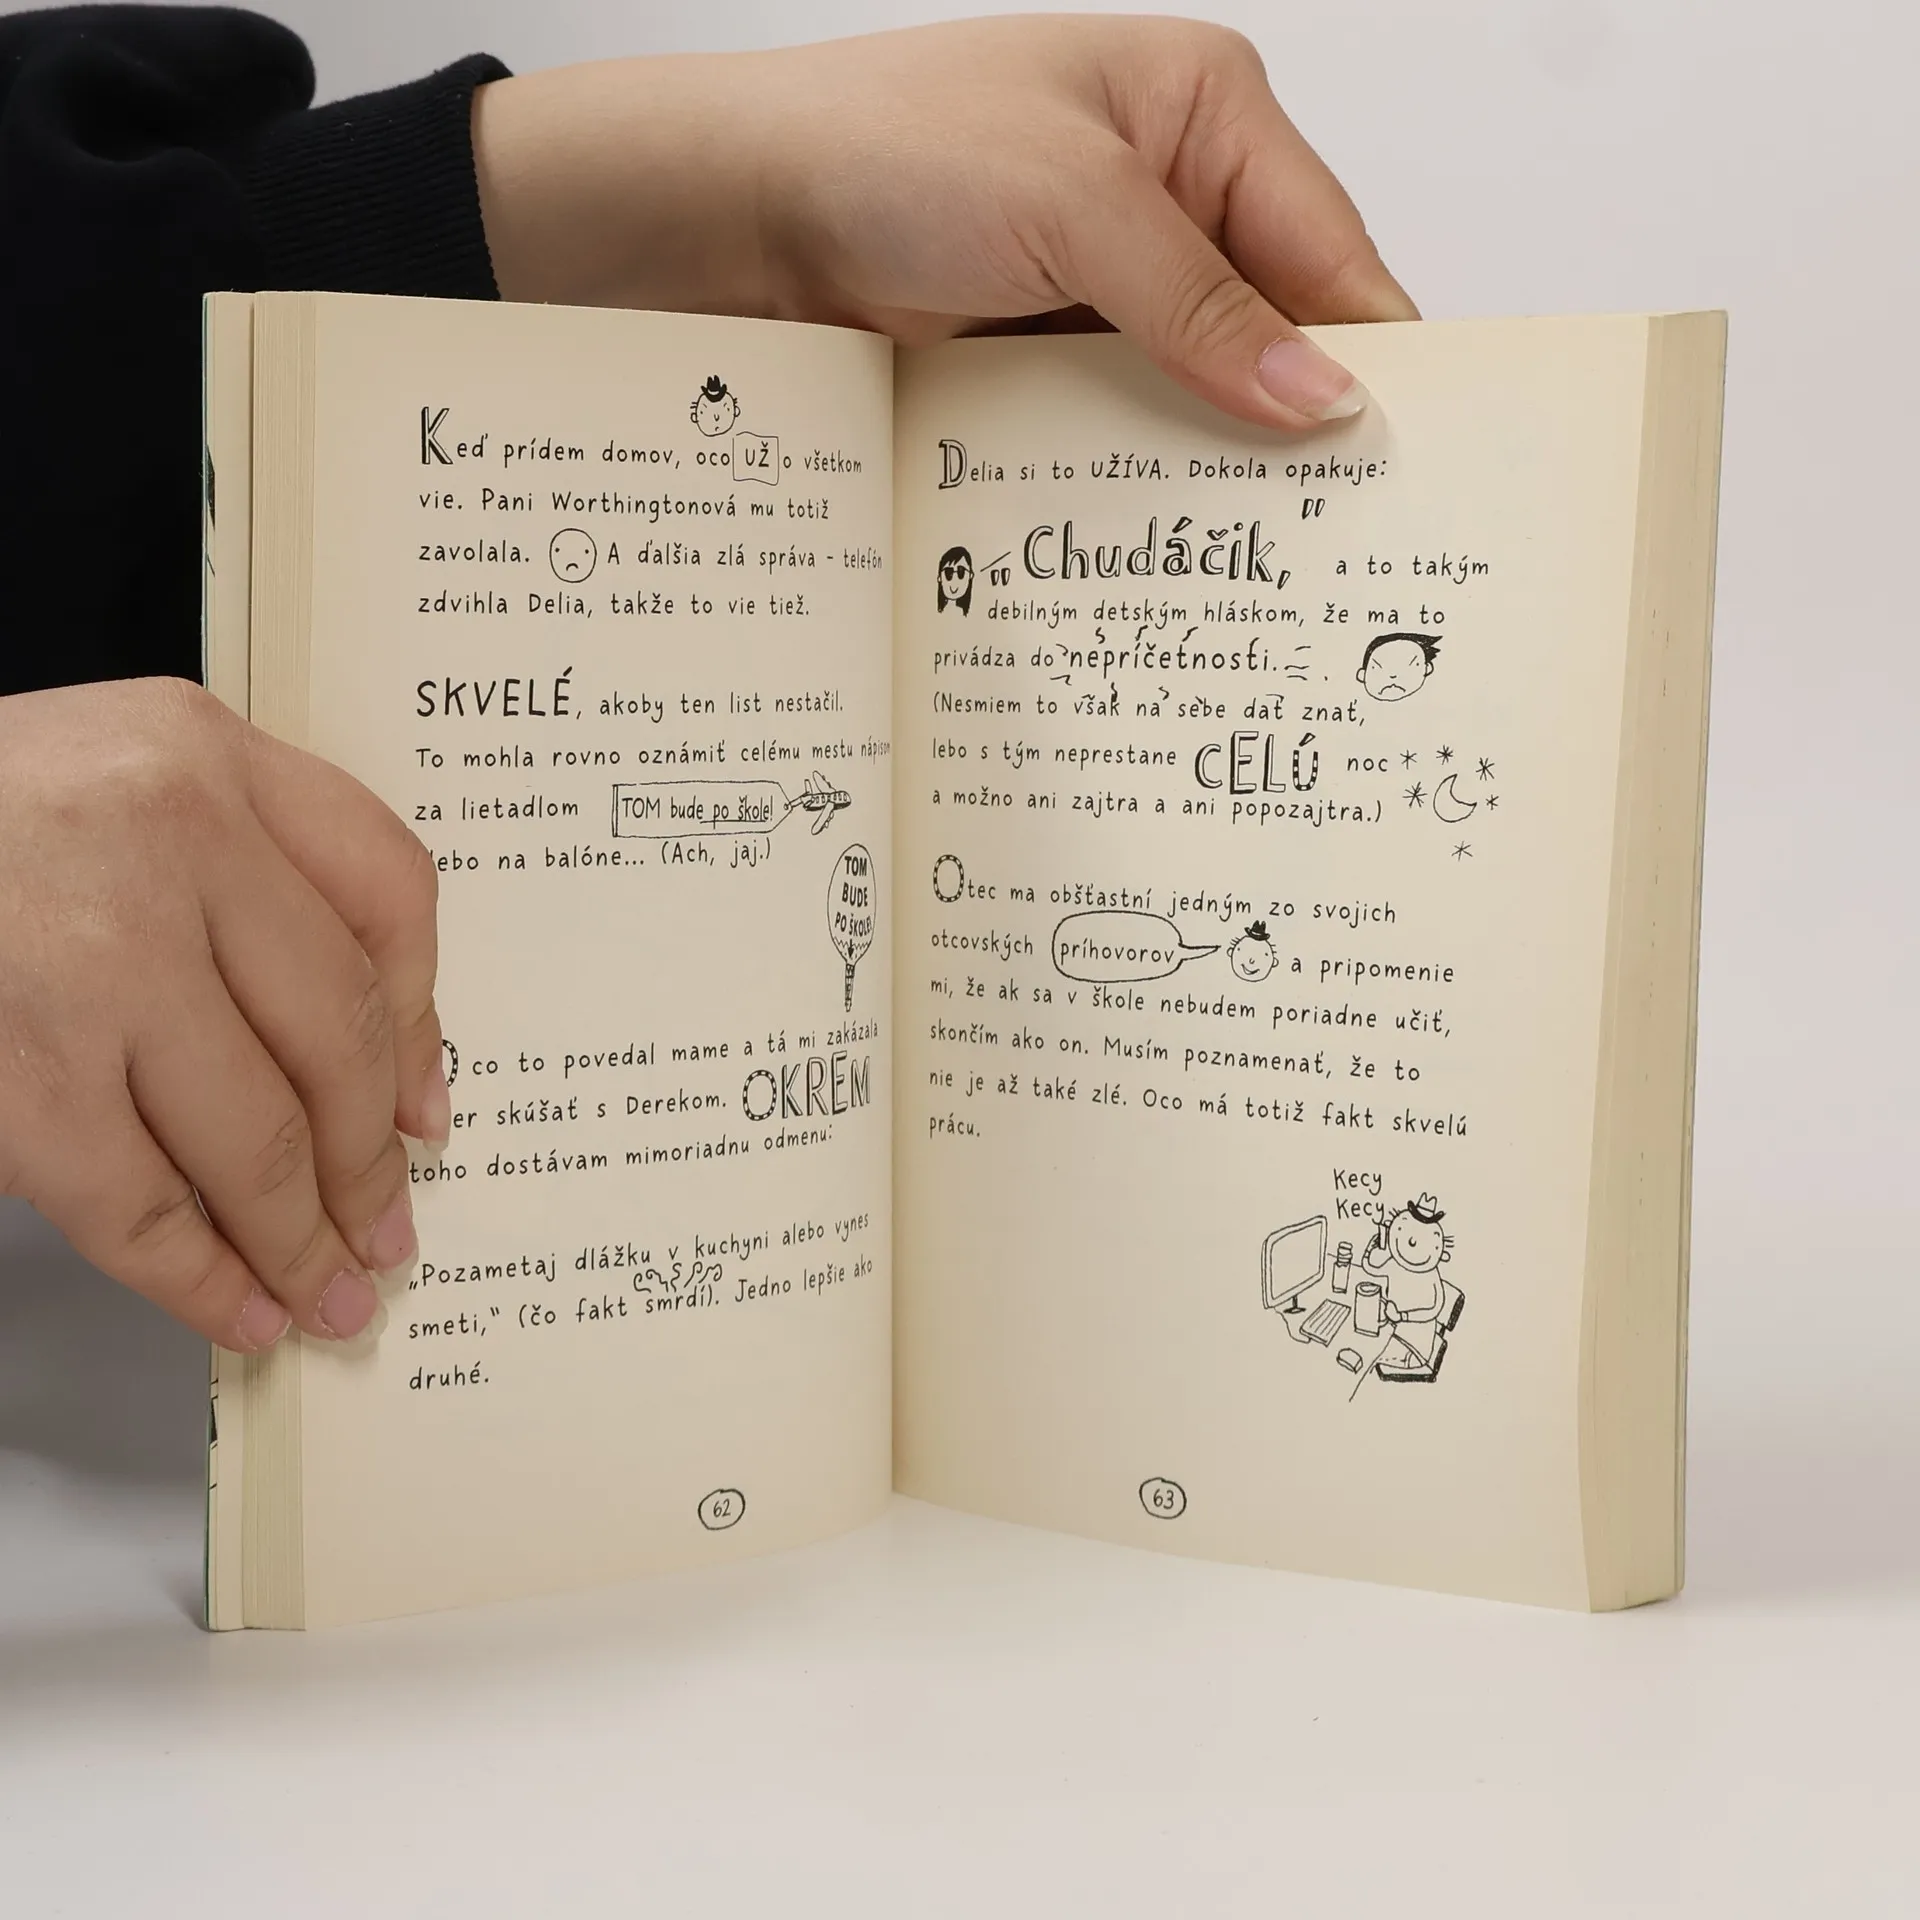 Keď prídem domov, oco UŽ o všetkom
vie. Pani Worthingtonová mu totiž
zavolala. A ďalšia zlá správa - telefón
zdvihla Delia, takže to vie tiež.
SKVELÉ, akoby ten list nestačil.
To mohla rovno oznámiť celému mestu nápisom
za lietadlom TOM bude po škole!
lebo na balóne... (Ach, jaj.)
TOM
BUDE
PO ŠKOLE!
co to povedal mame a tá mi zakázala
skúšať s Derekom. OKREM
toho dostávam mimoriadnu odmenu:
„Pozametaj dlážku v kuchyni alebo vynes
smeti,“ (čo fakt smrdí). Jedno lepšie ako
druhé.
62
Delia si to UŽÍVA. Dokola opakuje:
"Chudáčik," a to takým
debilným detským hláskom, že ma to
privádza do nepríčetnosti.
(Nesmiem to však na sebe dať znať,
lebo s tým neprestane CELÚ noc
a možno ani zajtra a ani popozajtra.)
Otec ma obšťastní jedným zo svojich
otcovských príhovorov a pripomenie
mi, že ak sa v škole nebudem poriadne učiť,
skončím ako on. Musím poznamenať, že to
nie je až také zlé. Oco má totiž fakt skvelú
prácu.
Kecy
Kecy
63